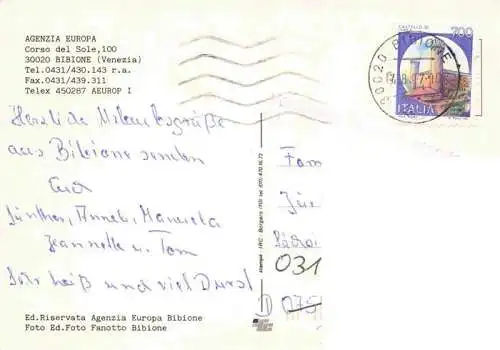 AGENZIA EUROPA
Corso del Sole,100
30020 BIBIONE (Venezia)
Tel.0431/430.143 r.a.
Fax.0431/439.311
Telex 450287 AEUROP I
Herzliche Urlaubsgrüße
aus Bibione senden
Euch
Günther, Annel, Manuela
Jeannette u. Tom
Sehr heiß und viel Durst
Ed.Riservata Agenzia Europa Bibione
Foto Ed.Foto Fanotto Bibione
Fam
Für
031
D 075
700
ITALIA
30020 BIBIONE